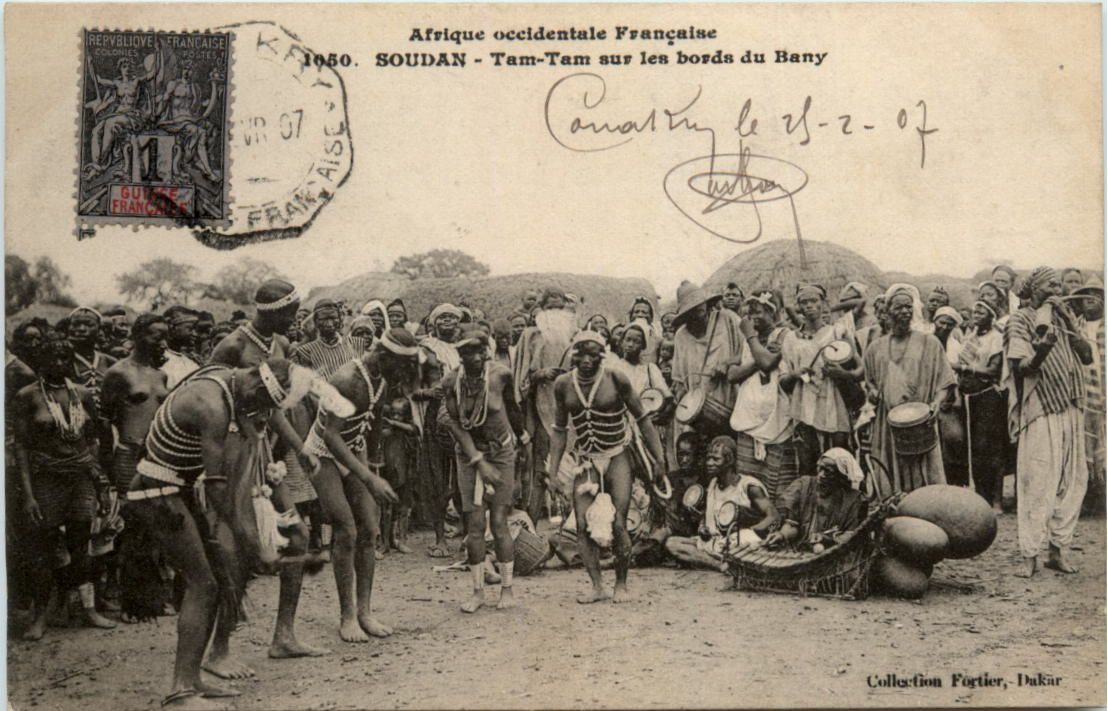 Afrique occidentale Française
1050. SOUDAN - Tam-Tam sur les bords du Bany
REPUBLIQUE FRANÇAISE
COLONIES POSTES
1
GUINÉE
FRANÇAISE
KRY
07
FRANÇAISE
Conakry le 25-2-07
Collection Fortier, Dakar